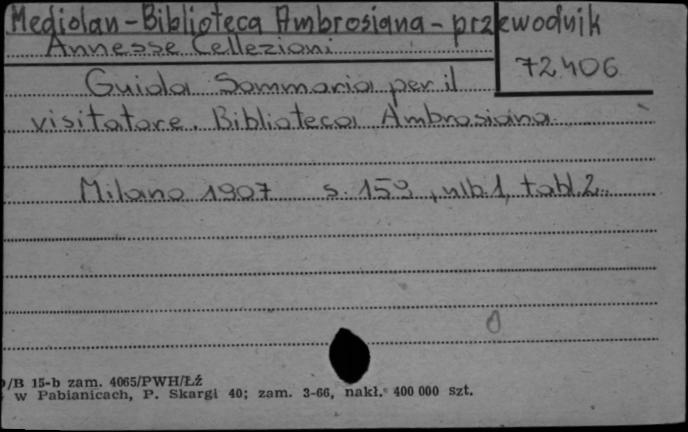 Mediolan - Biblioteca Ambrosiana - przewodnik
Annesse Cellezioni
72406
Guida Sommaria per il
visitatore. Biblioteca Ambrosiana.
Milano 1907 s. 159, nlb. 1, tabl. 2.
/B 15-b zam. 4065/PWH/Łź
w Pabianicach, P. Skargi 40; zam. 3-66, nakł. 400 000 szt.